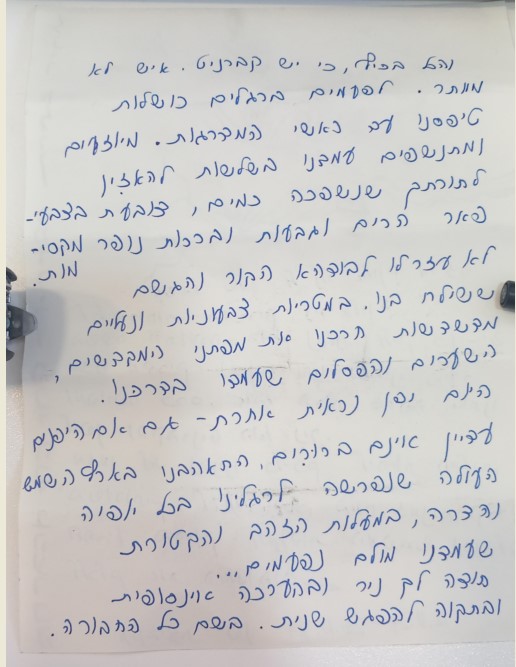 והכל בכיף, כי יש קברניט. איש לא
מוותר. לפעמים ברגלים כושלות
טיפסנו עד ראשי המדרגות. מיוזעים
ומתנשפים עמדנו בשלשות להאזין
לתורתך שנשפכה כמים, צובעת בצבעי-
פאר הרים וגבעות וברכות נופר מקסי-
מות.
לא עזרלו לבודהא הקור והגשם
ששילח בנו. במטריות צבעוניות ונעליים
מדשדשות חרכנו את מפתני המקדשים,
השערים והפסלים שעמדו בדרכנו.
היום יפן נראית אחרת - גם אם היפנים
עדיין אינם ברורים, התאהבנו בארץ השמש
העולה שנפרשה לרגלינו בכל יופיה
והדרה, במעלות הזהב והקטורת
שעמדנו מולם נפעמים...
תודה לך ניר ובהערכה אינסופית
ובתקוה להפגש שנית. בשם כל החבורה.